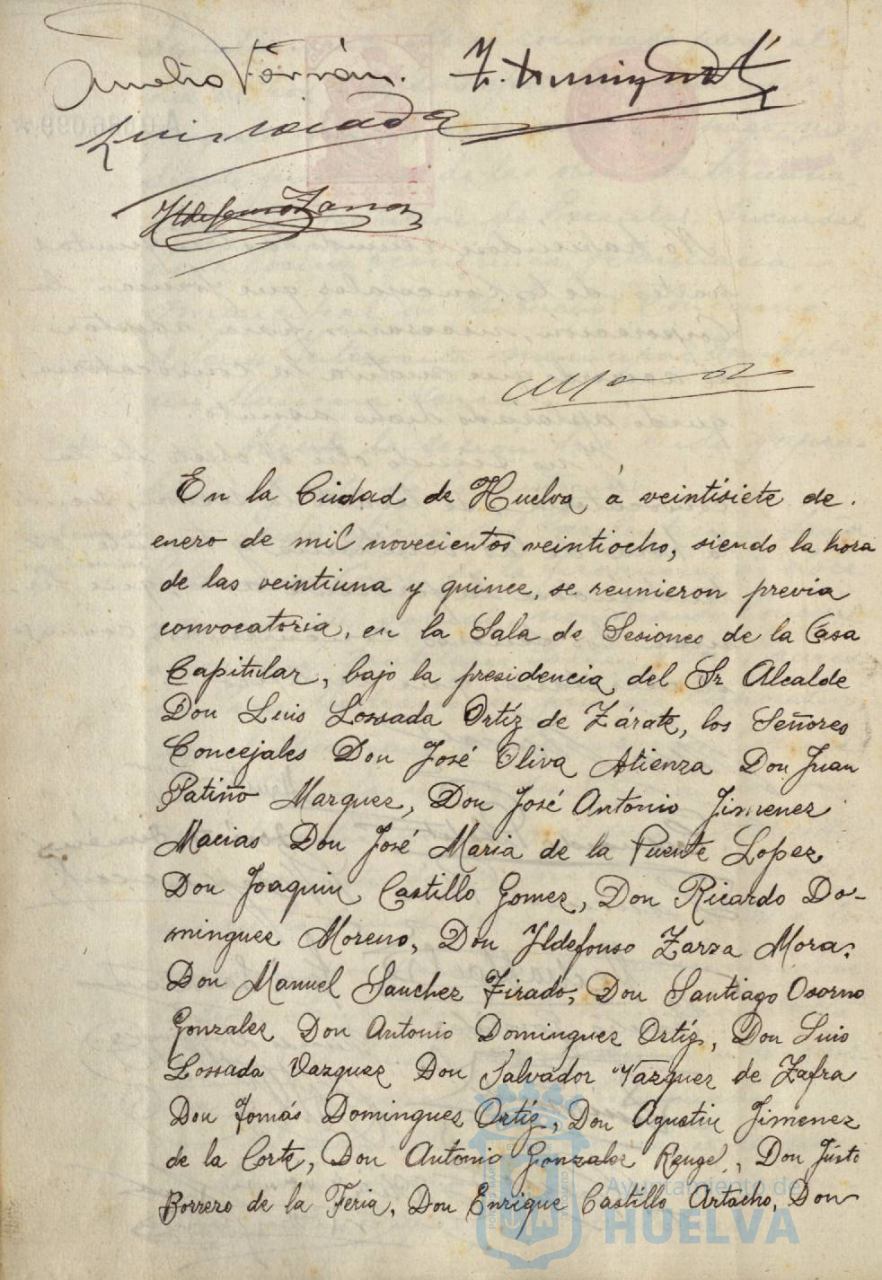 Aurelio Terrán. T. Dominguez
Luis Losada
Ildefonso Zarza
En la Ciudad de Huelva á veintisiete de.
enero de mil novecientos veintiocho, siendo la hora
de las veintiuna y quince, se reunieron previa
convocatoria, en la Sala de Sesiones de la Casa
Capitular, bajo la presidencia del Sr Alcalde
Don Luis Lossada Ortíz de Zárate, los Señores
Concejales Don José Oliva Atienza Don Juan
Patiño Marquez, Don José Antonio Jimenez
Macias Don José Maria de la Puente Lopez
Don Joaquin Castillo Gomez, Don Ricardo Do-
minguez Moreno, Don Yldefonso Zarza Mora,
Don Manuel Sanchez Tirado, Don Santiago Osorno
Gonzalez Don Antonio Dominguez Ortíz, Don Luis
Lossada Vazquez Don Salvador Vazquez de Zafra
Don Tomás Dominguez Ortíz, Don Agustin Jimenez
de la Corte, Don Antonio Gonzalez Rouge, Don Justo
Borrero de la Feria, Don Enrique Castillo Artacho, Don
Ayuntamiento de
HUELVA